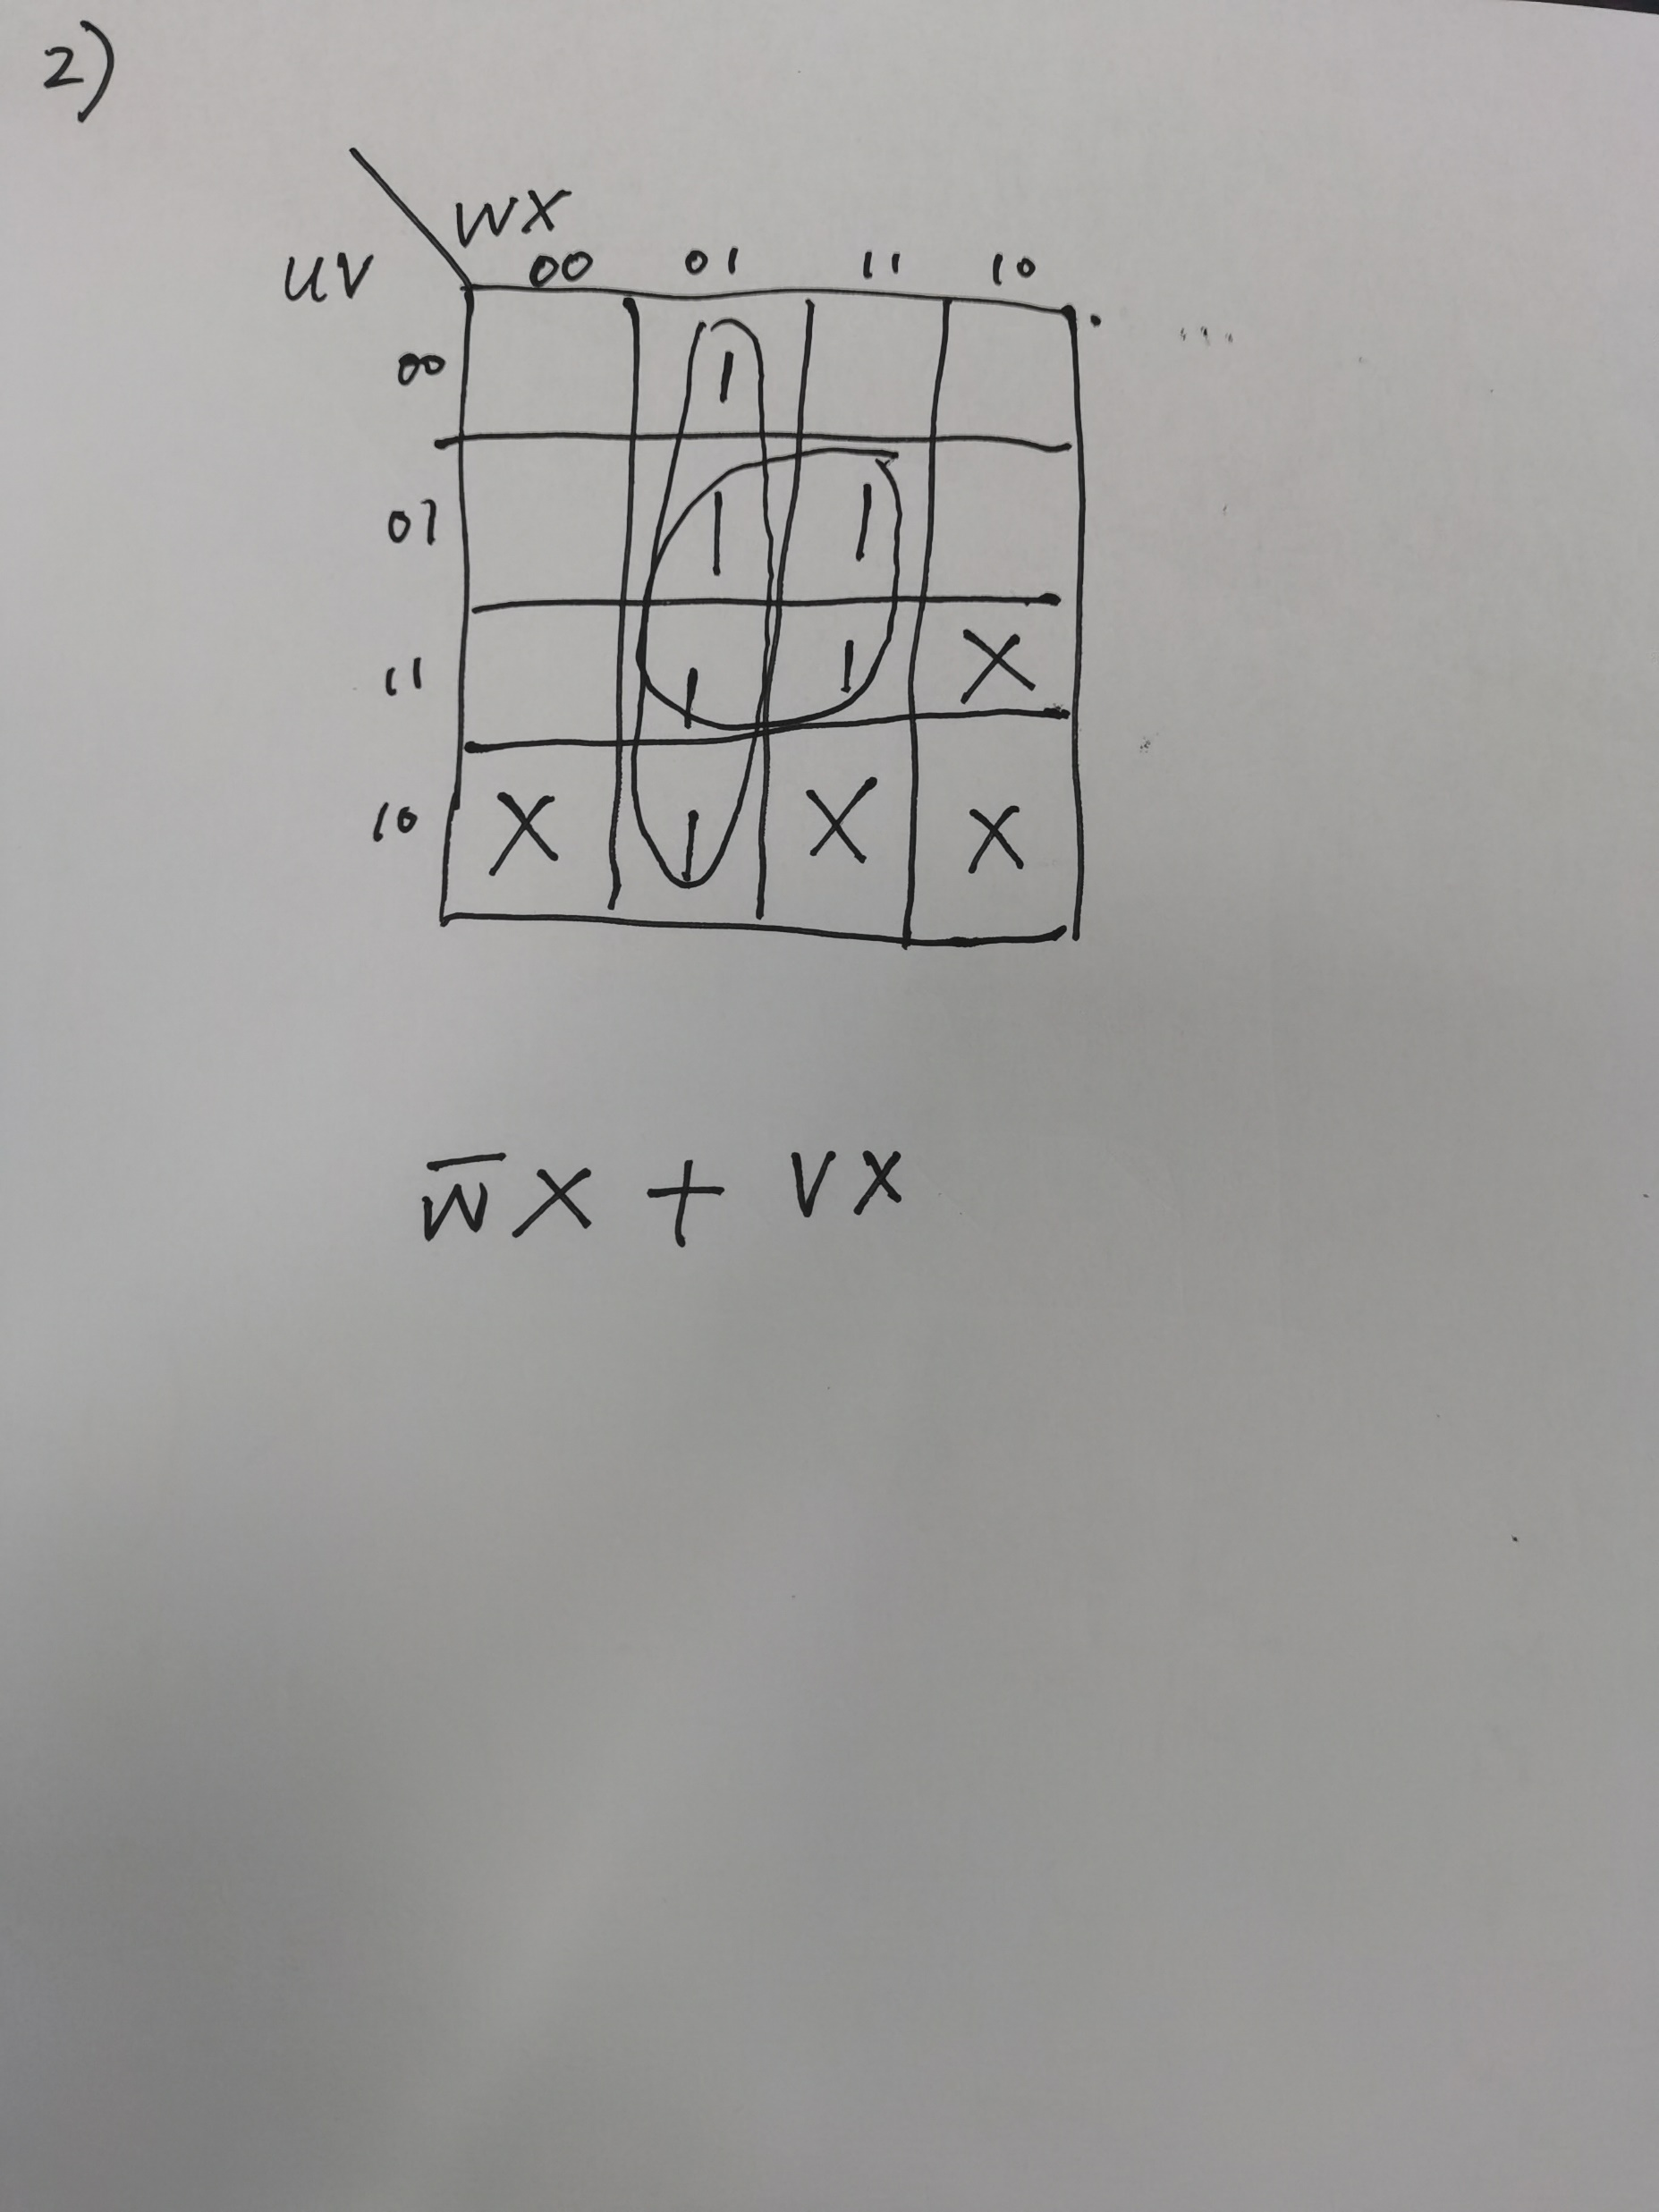 2)
WX
UV 00 01 11 10
00 1
01 1 1
11 1 1 X
10 X 1 X X
W̅X + VX